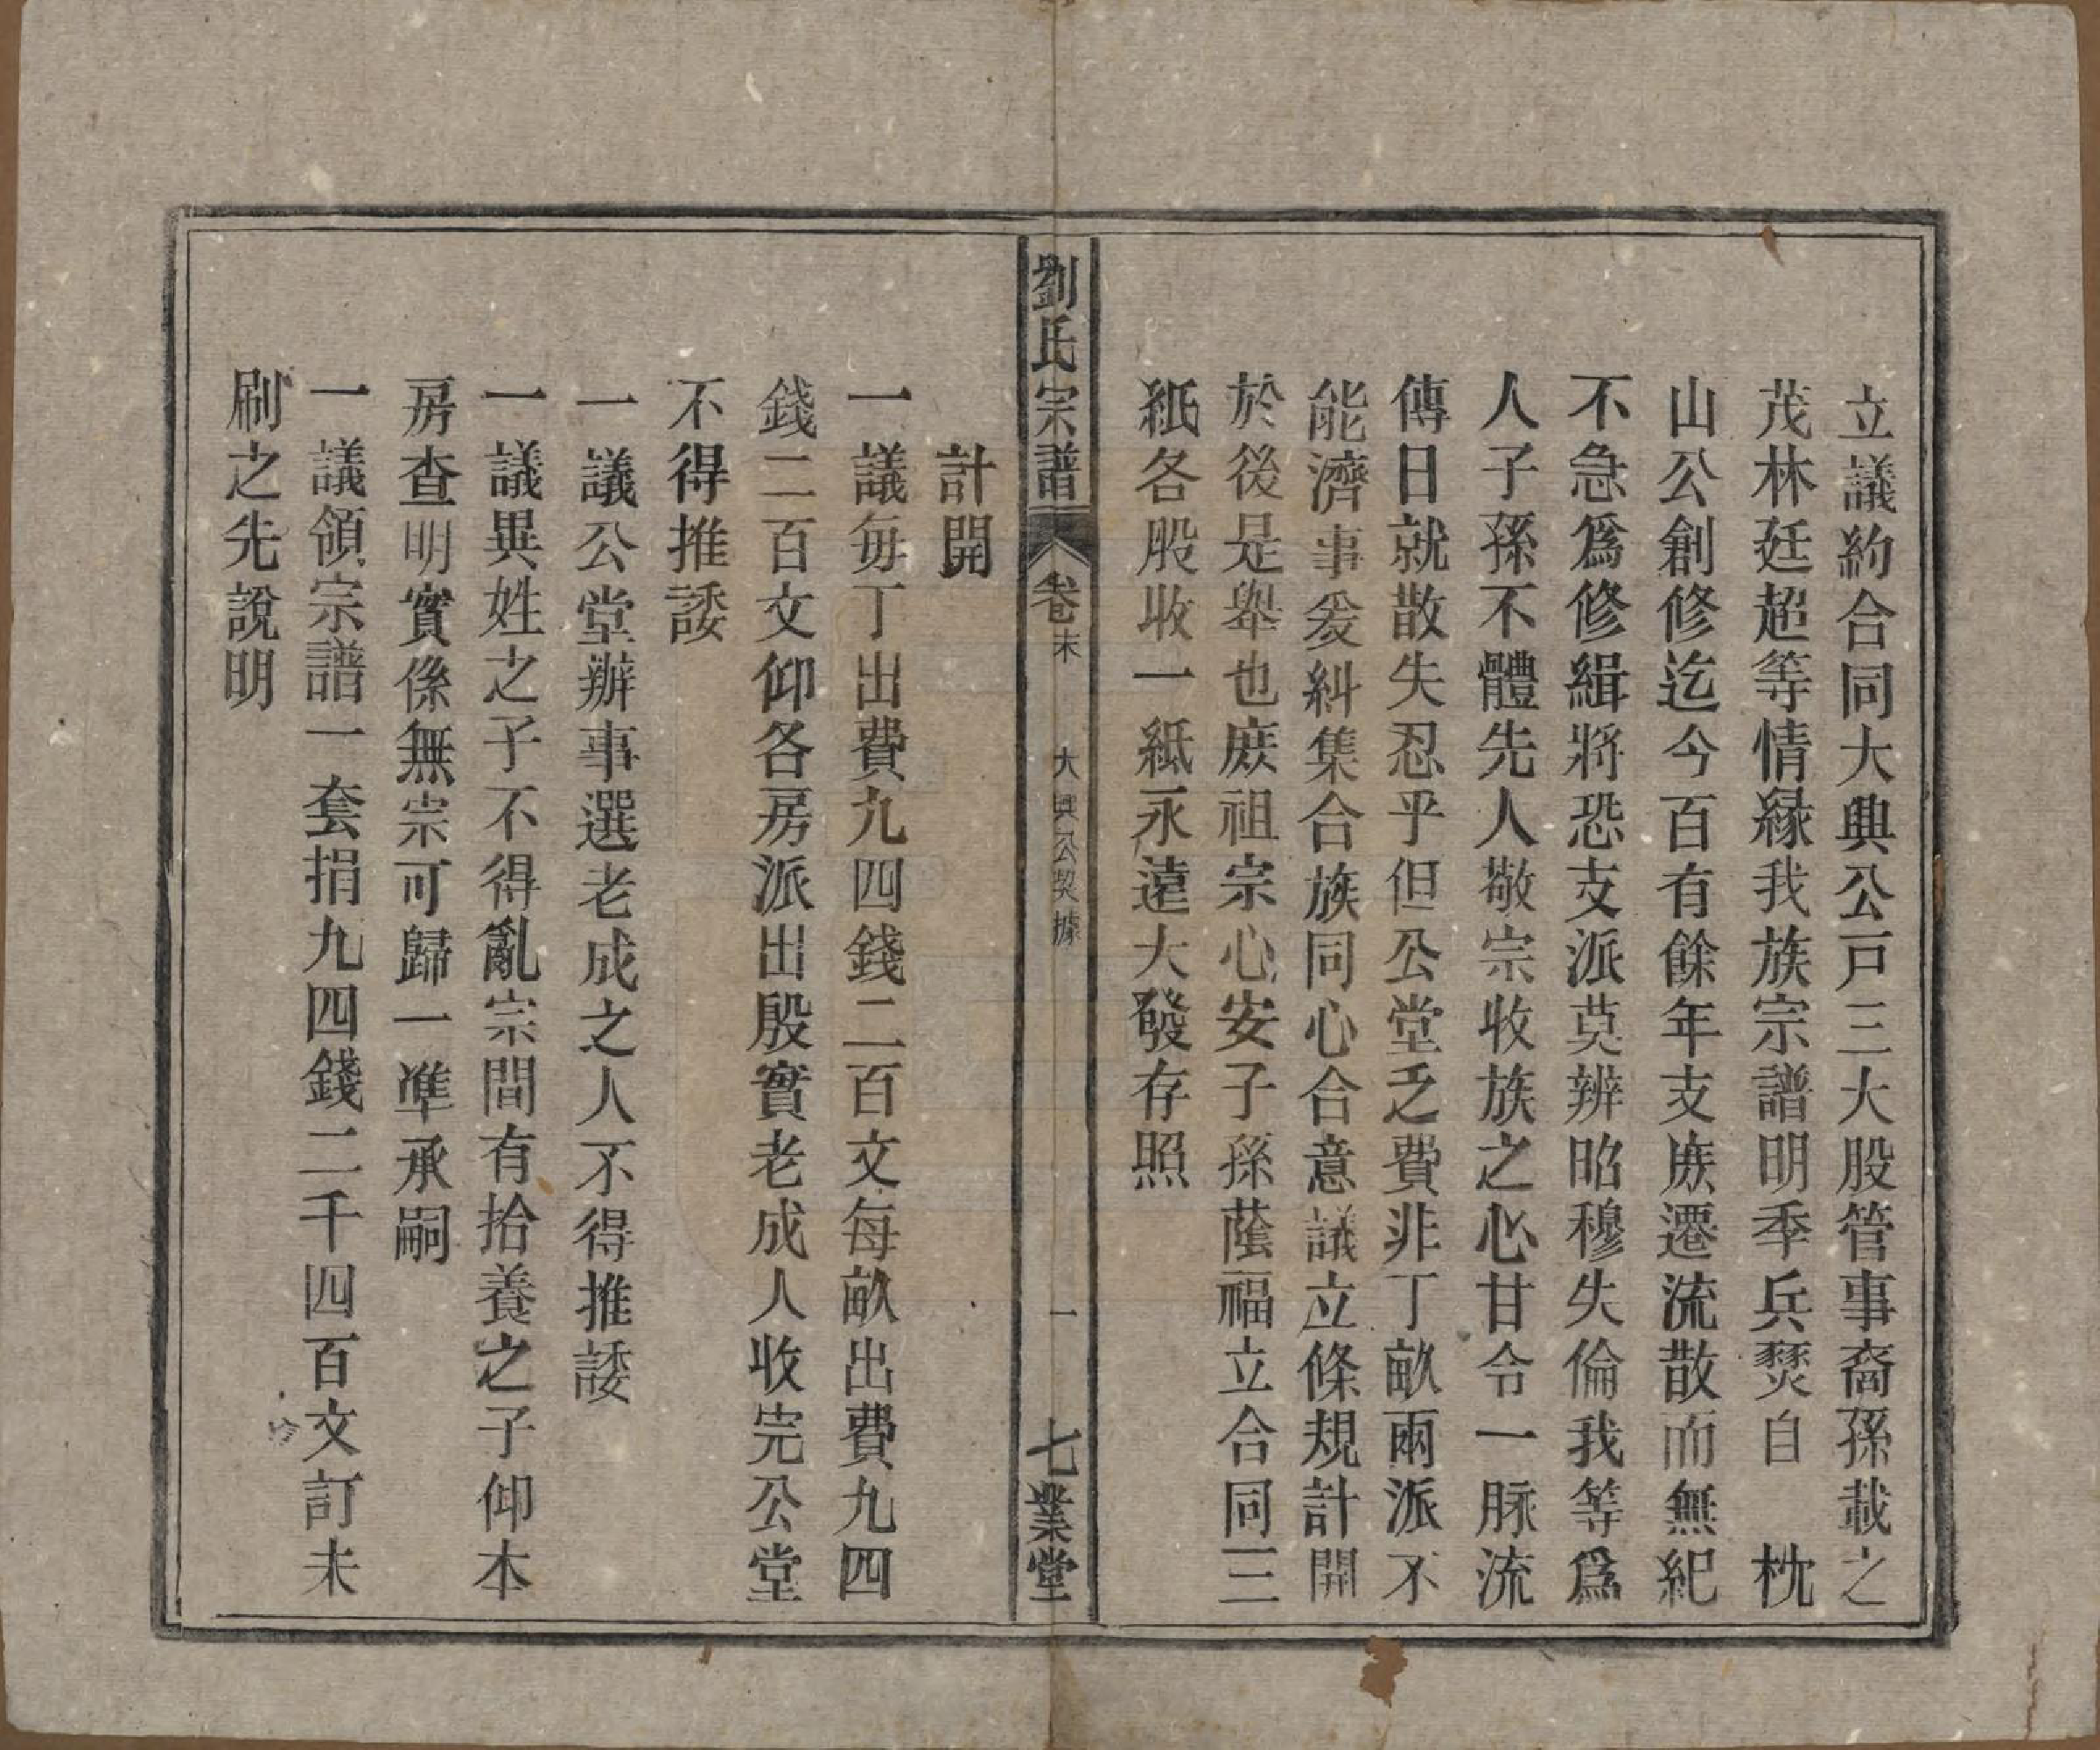 立議約合同大興公戸三大股管事裔孫載之
茂林廷超等情緣我族宗譜明季兵燹自　枕
山公創修迄今百有餘年支族遷流散而無紀
不急爲修緝將恐支派莫辨昭穆失倫我等爲
人子孫不體先人敬宗收族之心甘令一脉流
傳日就散失忍乎但公堂乏費非丁畝兩派不
能濟事爰糾集合族同心合意議立條規計開
於後是舉也庻祖宗心安子孫蔭福立合同三
紙各股收一紙永遠大發存照
劉氏宗譜
卷末
大興公契據
一
七業堂
計開
一議每丁出費九四錢二百文每畝出費九四
錢二百文仰各房派出殷實老成人收完公堂
不得推諉
一議公堂辦事選老成之人不得推諉
一議異姓之子不得亂宗間有拾養之子仰本
房查明實係無宗可歸一準承嗣
一議領宗譜一套捐九四錢二千四百文訂未
刷之先說明